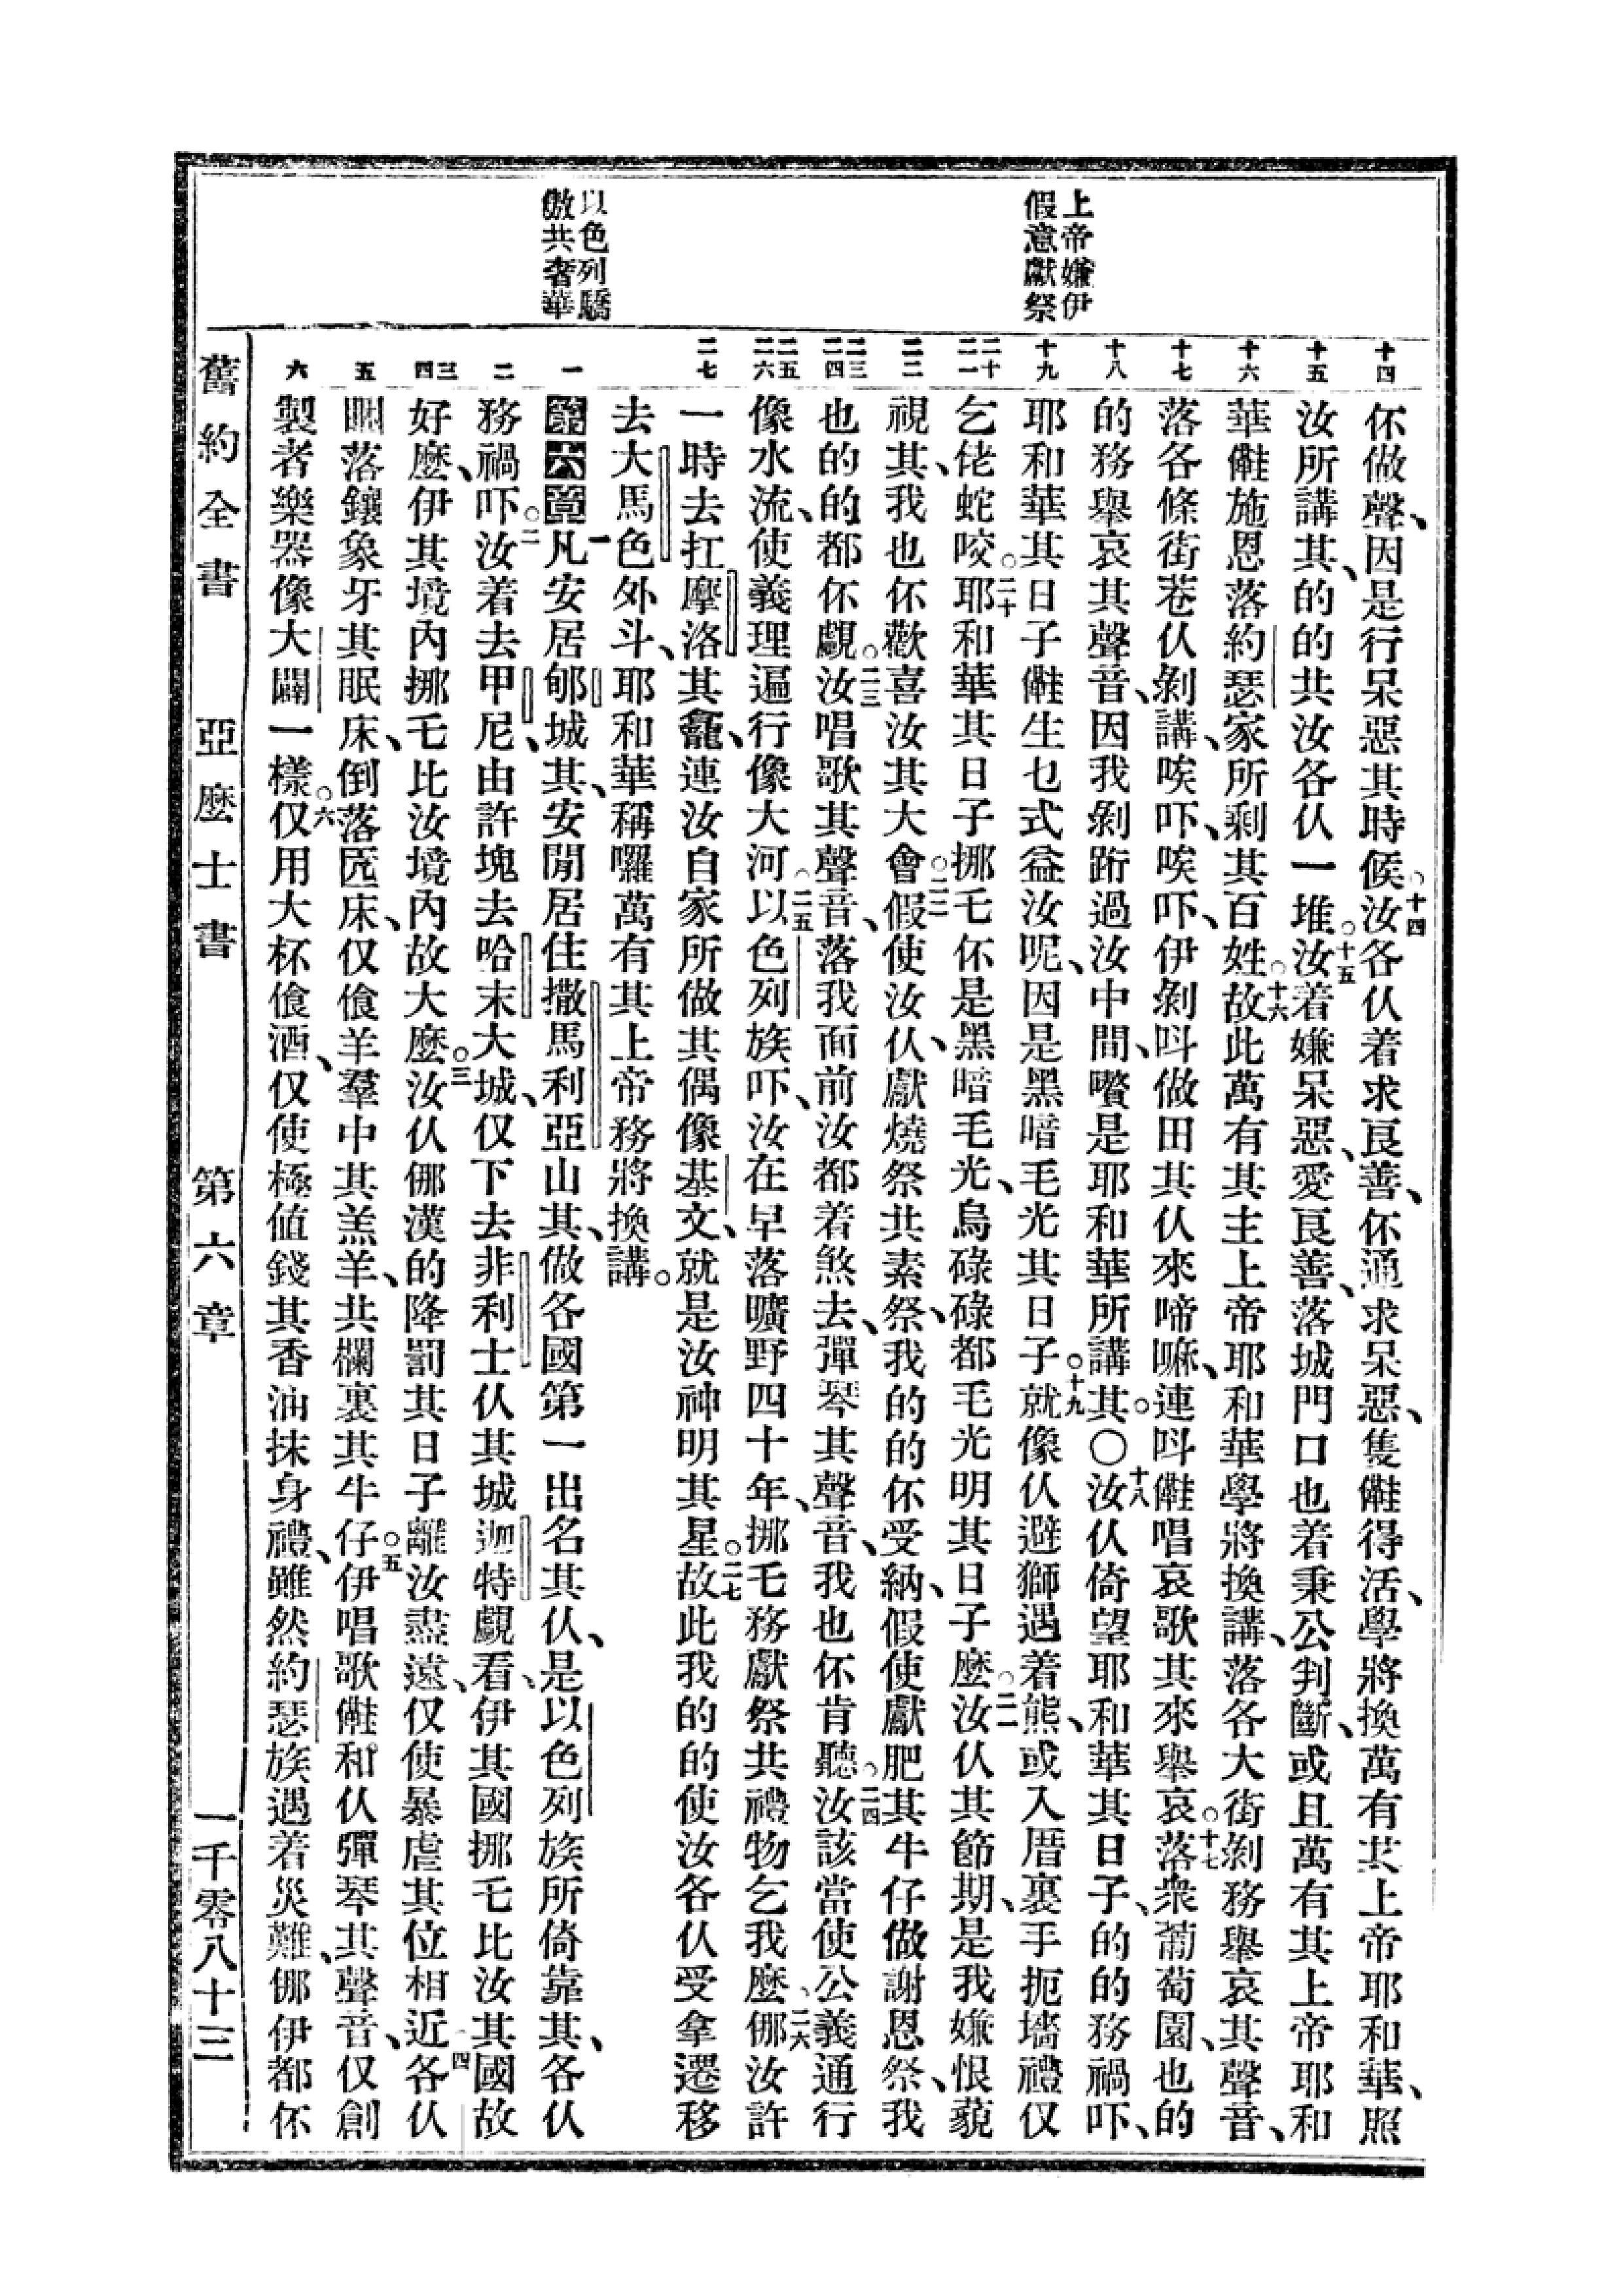 上帝嫌伊
假意獻祭
以色列驕
傲共奢華
十四
十五
十六
十七
十八
十九
二十
二一
二二
二三
二四
二五
二六
二七
一
二
三
四
五
六
伓做聲、因是行呆惡其時候。十四汝各仈着求良善、伓通求呆惡、隻儺得活、學將換萬有其上帝耶和華、照
汝所講其、的的共汝各仈一堆。十五汝着嫌呆惡、愛良善、落城門口也着秉公判斷、或且萬有其上帝耶和
華儺施恩落約瑟家所剩其百姓。十六故此萬有其主上帝耶和華學將換講、落各大街剝務舉哀其聲音、
落各條街巷仈剝講、唉吓、唉吓、伊剝呌做田其仈來啼嘛、連呌儺唱哀歌其來舉哀。十七落衆葡萄園、也的
的務舉哀其聲音、因我剝跱過汝中間、嚽是耶和華所講其。〇十八汝仈倚望耶和華其日子、的的務禍吓、
耶和華其日子儺生乜式益汝呢、因是黑暗毛光其日子。十九就像仈避獅遇着熊、或入厝裏手扼墻禮仅
乞佬蛇咬。二十耶和華其日子挪乇伓是黑暗毛光、烏碌碌都毛光明其日子麽。二一汝仈其節期、是我嫌恨藐
視其、我也伓歡喜汝其大會。二二假使汝仈、獻燒祭共素祭、我的的伓受納、假使獻肥其牛仔做謝恩祭、我
也的的都伓覰。二三汝唱歌其聲音、落我面前汝都着煞去、彈琴其聲音、我也伓肯聽。二四汝該當使公義通行
像水流、使義理遍行像大河。二五以色列族吓、汝在早落曠野四十年、挪乇務獻祭共禮物乞我麽、二六㑚汝許
一時去扛摩洛其龕、連汝自家所做其偶像基文、就是汝神明其星。二七故此我的的使汝各仈受拿遷移
去大馬色外斗、耶和華稱囉萬有其上帝務將換講。
第六章一凡安居郇城其、安閒居住撒馬利亞山其、做各國第一出名其仈、是以色列族所倚靠其、各仈
務禍吓。二汝着去甲尼、由許塊去哈末大城、仅下去非利士仈其城迦特覰看、伊其國挪乇比汝其國故
好麽、伊其境內挪乇比汝境內故大麽。三汝仈㑚漢的降罰其日子離汝盡遠、仅使暴虐其位相近、四各仈
眠落鑲象牙其眠床、倒落匟床、仅飡羊羣中其羔羊、共欄裏其牛仔。五伊唱歌儺和仈彈琴其聲音、仅創
製者樂器像大闢一樣。六仅用大杯飡酒、仅使極值錢其香油抹身禮、雖然約瑟族遇着災難、㑚伊都伓
舊約全書　亞麽士書　第六章　一千零八十三